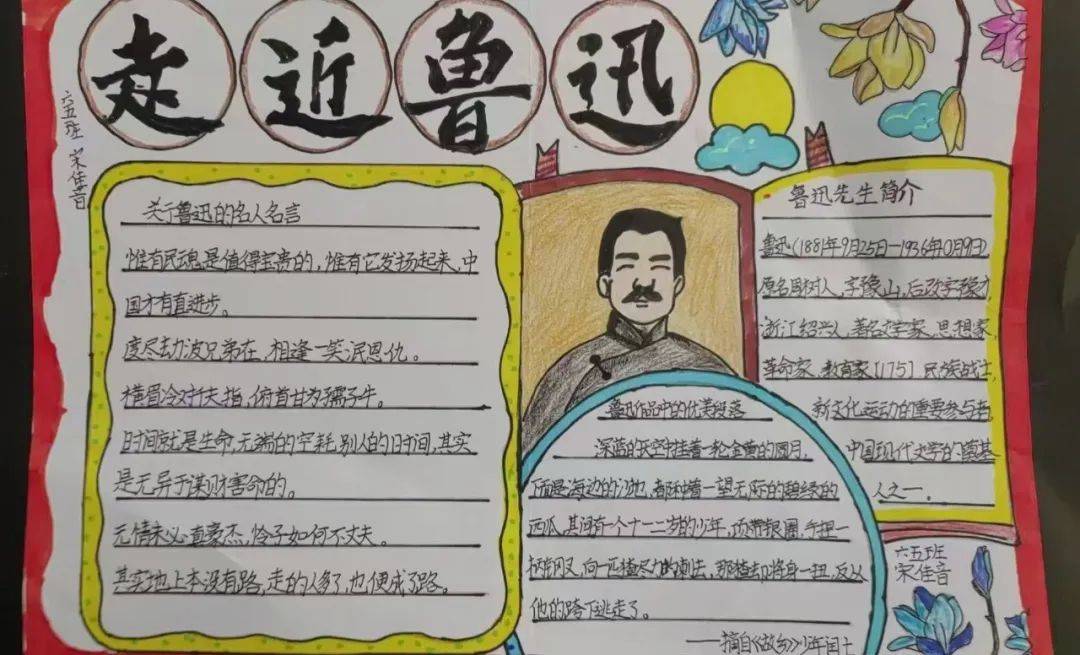 走近鲁迅
六五班 宋佳音
关于鲁迅的名人名言
惟有民魂是值得宝贵的，惟有它发扬起来，中
国才有真进步。
度尽劫波兄弟在，相逢一笑泯恩仇。
横眉冷对千夫指，俯首甘为孺子牛。
时间就是生命，无端的空耗别人的时间，其实
是无异于谋财害命的。
无情未必真豪杰，怜子如何不丈夫。
其实地上本没有路，走的人多了，也便成了路。
鲁迅先生简介
鲁迅（1881年9月25日—1936年10月19日）
原名周树人，字豫山，后改字豫才，
浙江绍兴人，著名文学家、思想家、
革命家、教育家[175]，民族战士，
新文化运动的重要参与者，
中国现代文学的奠基
人之一。
鲁迅作品中的优美段落
深蓝的天空中挂着一轮金黄的圆月，
下面是海边的沙地，都种着一望无际的碧绿的
西瓜，其间有一个十一二岁的少年，项带银圈，手捏一
柄钢叉，向一匹猹尽力的刺去，那猹却将身一扭，反从
他的胯下逃走了。
——摘自《故乡》少年闰土
六五班
宋佳音